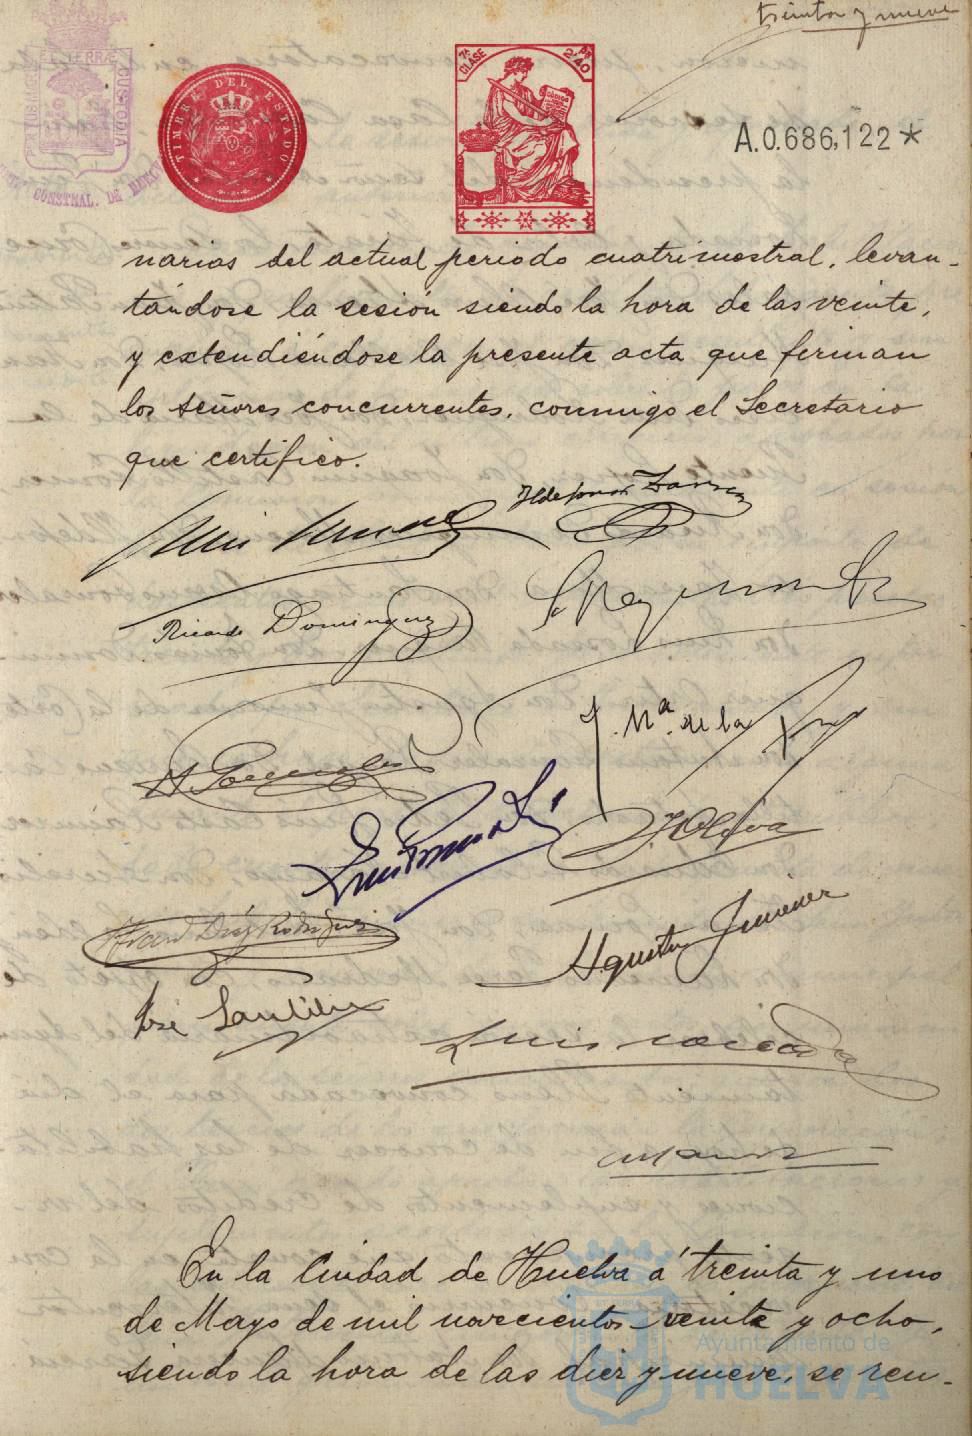 treinta y nueve
PORTUS MARIS ET TERRÆ CUSTODIA
CONSTNAL. DE HUELVA
TIMBRE DEL ESTADO
7ª CLASE
2'40
A.0.686,122*
narias del actual periodo cuatrimestral, levan-
tándose la sesión siendo la hora de las veinte,
y extendiéndose la presente acta que firman
los señores concurrentes, conmigo el Secretario
que certifico.
Ricardo Dominguez
J. Mª. de la
H. Gonzalez
J. Oliva
Díaz Rodríguez
Agustin Jimenez
José
Luis
En la Ciudad de Huelva á treinta y uno
de Mayo de mil novecientos veinte y ocho,
siendo la hora de las diez y nueve, se reu-
Ayuntamiento de
HUELVA